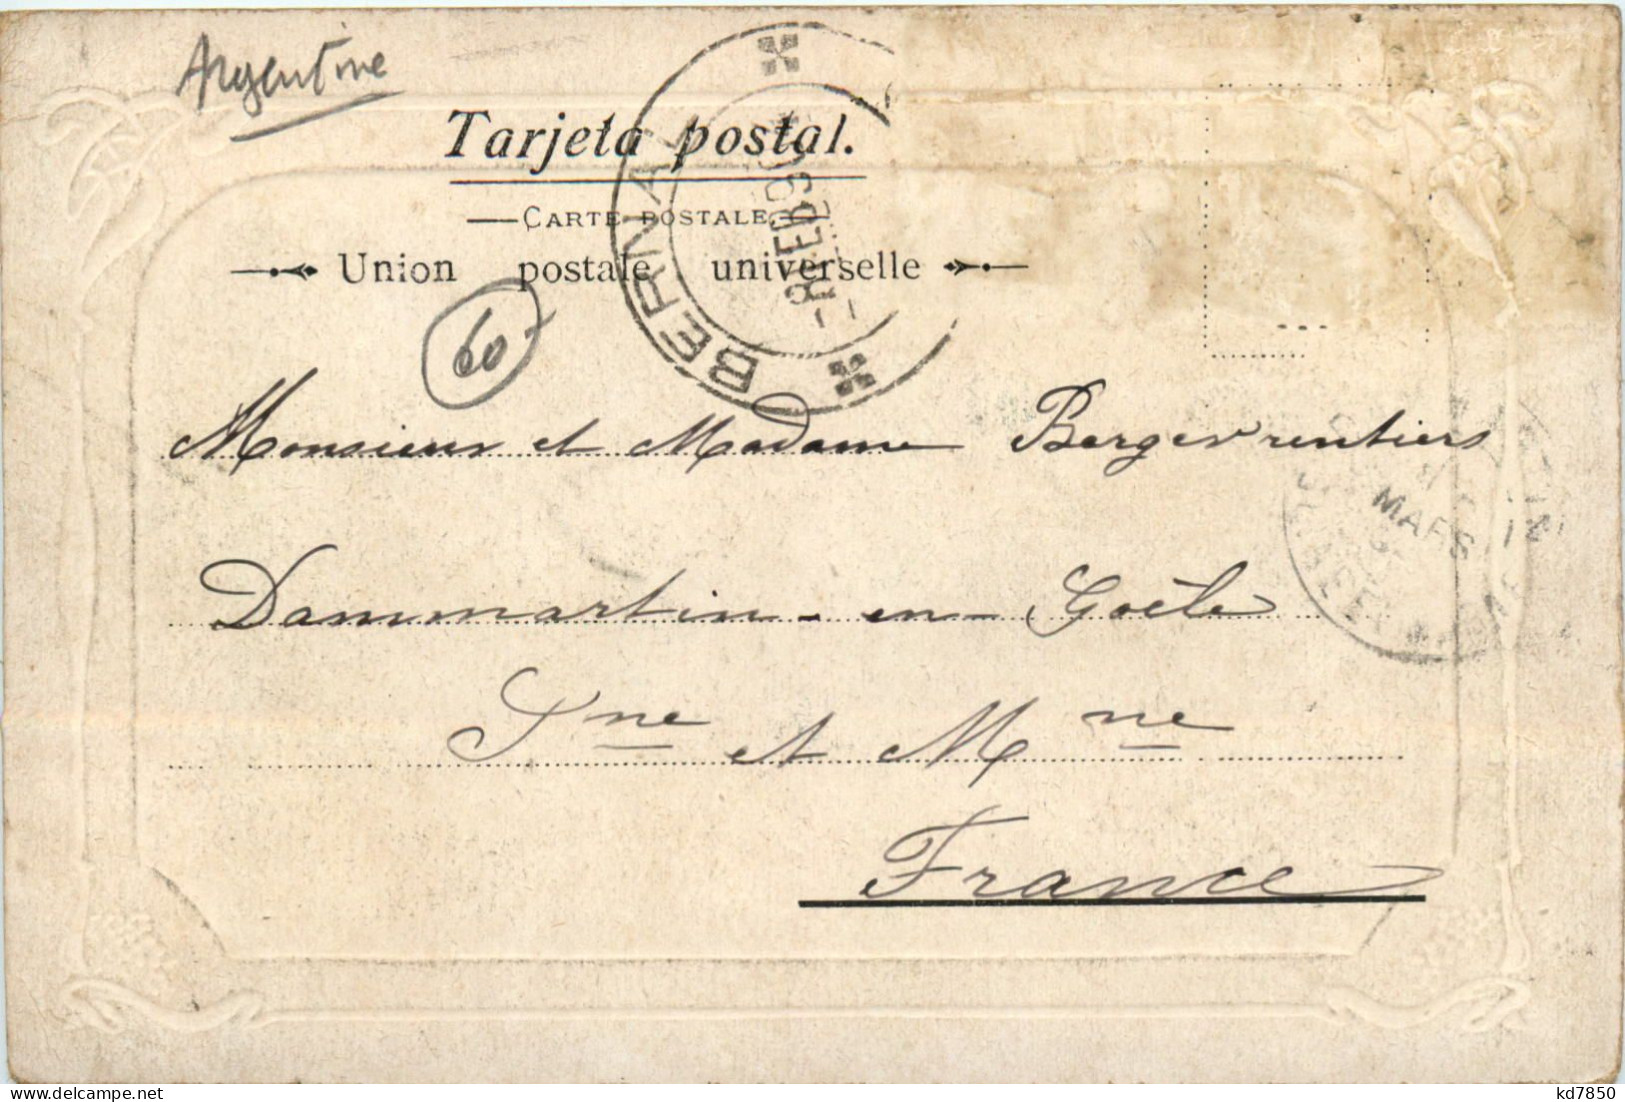 Argentine
Tarjeta postal.
CARTE POSTALE
Union postale universelle
BERNAL
FEB
60
Monsieur et Madame Berger rentiers
MARS
Dammartin-en-Goële
Sne et Mne
France
www.delcampe.net
kd7850